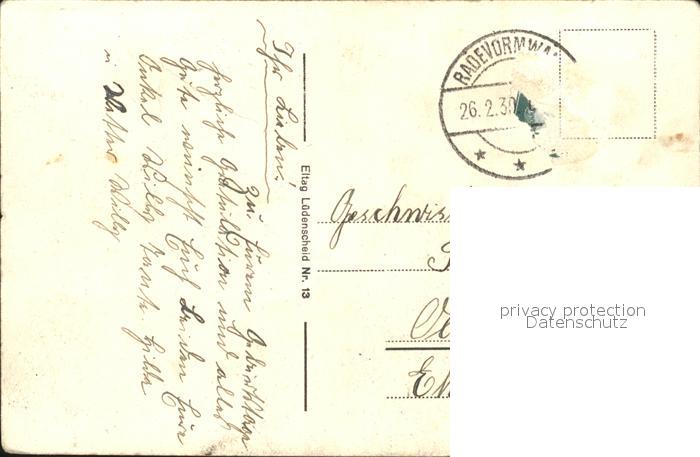 Ihr Lieben!
Zu Eurem Geburtstage
herzliche Gratulation und alles
Gute wünscht Euch beiden Eure
Onkel Willy Tante Hilda
u Walter Willy
Eltag Lüdenscheid Nr. 13
RADEVORMWA
26.2.30
Geschwis
privacy protection
Datenschutz